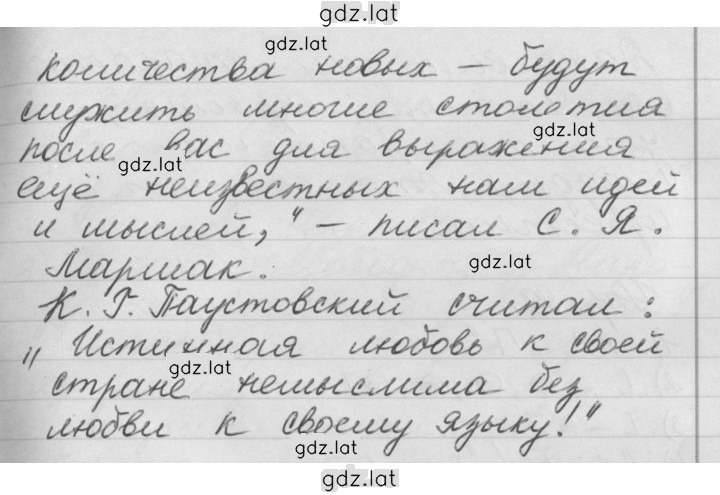 gdz.lat
gdz.lat
количества новых – будут
служить многие столетия
gdz.lat
после вас для выражения
gdz.lat
ещё неизвестных нам идей
и мыслей," – писал С. Я.
Маршак.
gdz.lat
К. Г. Паустовский считал:
„Истинная любовь к своей
gdz.lat
стране немыслима без
любви к своему языку!"
gdz.lat
gdz.lat